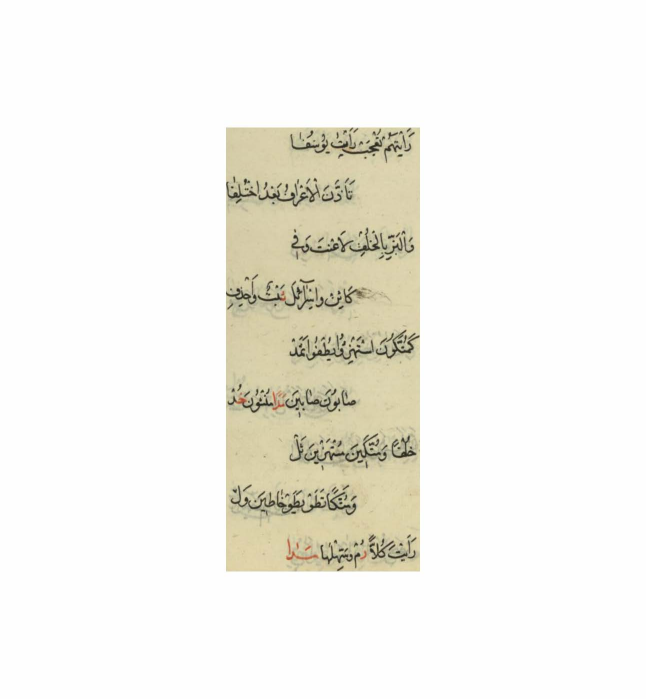 رَأَيْتَهُمْ تُعْجِبْ رَأَيْتُ يُوسُفَا
تَأَذَّنَ الْأَعْرَافُ بَعْدُ اخْتُلِفَا
وَالْبَزِّ بِالْخُلْفِ لَأَعْنَتَ وَفِي
كَائِنْ وَإِسْرَآئِلَ ثَبْتٌ وَاحْذِفِ
كَمُتَّكُونَ اسْتَهْزِؤُا يُطْفُوا ثَمَدْ
صَابُونَ صَابِينَ مَدًا مُنْشُونَ خُدْ
خُلْفًا وَمُتَّكِينَ مُسْتَهْزِينَ ثَلْ
وَمُتَّكًا تَطَوْ يَطَوْ خَاطِينَ وَلْ
رَأَيْتَ كُلًّا رُمْ وَسَهِّلْهَا مَدَا